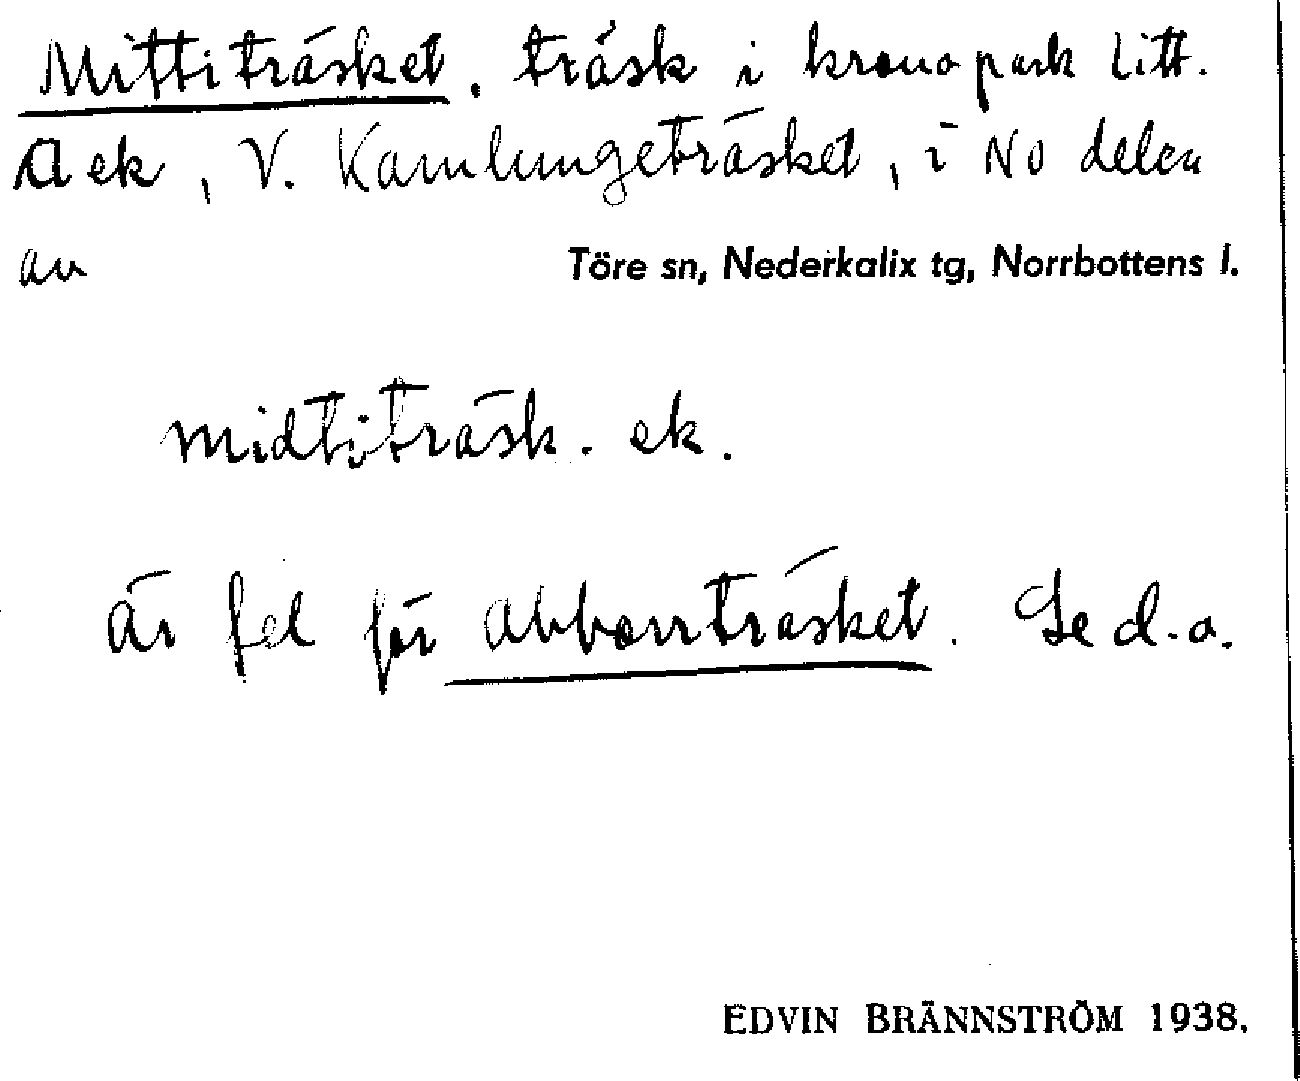 Mittiträsket. träsk i kronopark litt.
A ek, V. Kamlungeträsket, i NO delen
av Töre sn, Nederkalix tg, Norrbottens l.
midtiträsk. ek.
är fel för abborrträsket. Se d.o.
EDVIN BRÄNNSTRÖM 1938.